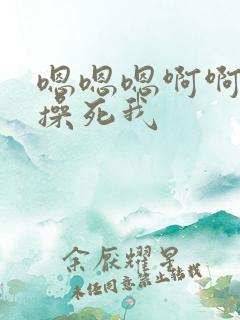 嗯嗯嗯啊啊
操死我
余厌耀星
未经同意禁止转载